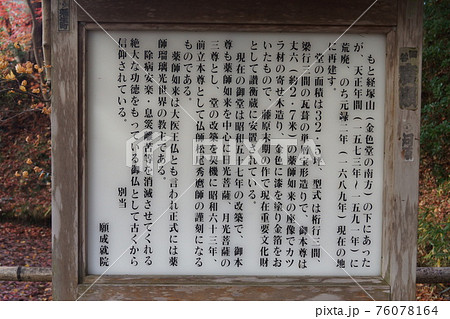 もと経塚山(金色堂の南方)の下にあった
が、天正年間(一五七三年~一五九一年)に
荒廃、のち元録二年(一六八九年)現在の地
に再建す。
堂の面積は32・5坪、型式は桁行三間、
梁行三間の瓦葺の単層宝形造りで、御本尊は
丈六(約2・7米)の薬師如来の座像でカツ
ラ材の寄せ木造り、金色に漆を塗り金箔をお
いたもので藤原末期の作で現在重要文化財
として讃衡蔵に安置されている。
現在の御堂は昭和五十七年の改築で、御本
尊も薬師如来を中心に日光菩薩、月光菩薩の
三尊とし、堂の改築を契機に昭和六十三年、
前立本尊として仏師松尾秀麿師の謹刻になる
ものである。
薬師如来は大医王仏とも言われ正式には薬
師瑠璃光世界の教主である。
除病安楽・息災離苦等を消滅させてくれる
絶大な功徳をもっている御仏として古くから
信仰されている。
別当
願成就院
pixta
76078164